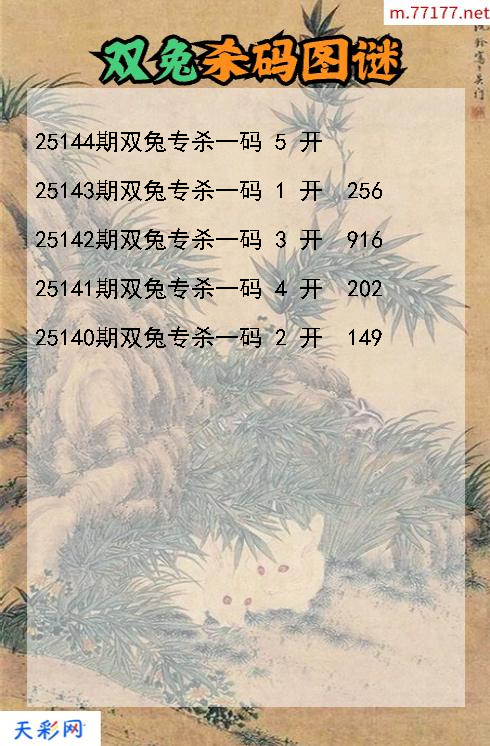 m.77177.net
双兔杀码图谜
25144期双兔专杀一码 5 开
25143期双兔专杀一码 1 开 256
25142期双兔专杀一码 3 开 916
25141期双兔专杀一码 4 开 202
25140期双兔专杀一码 2 开 149
天彩网